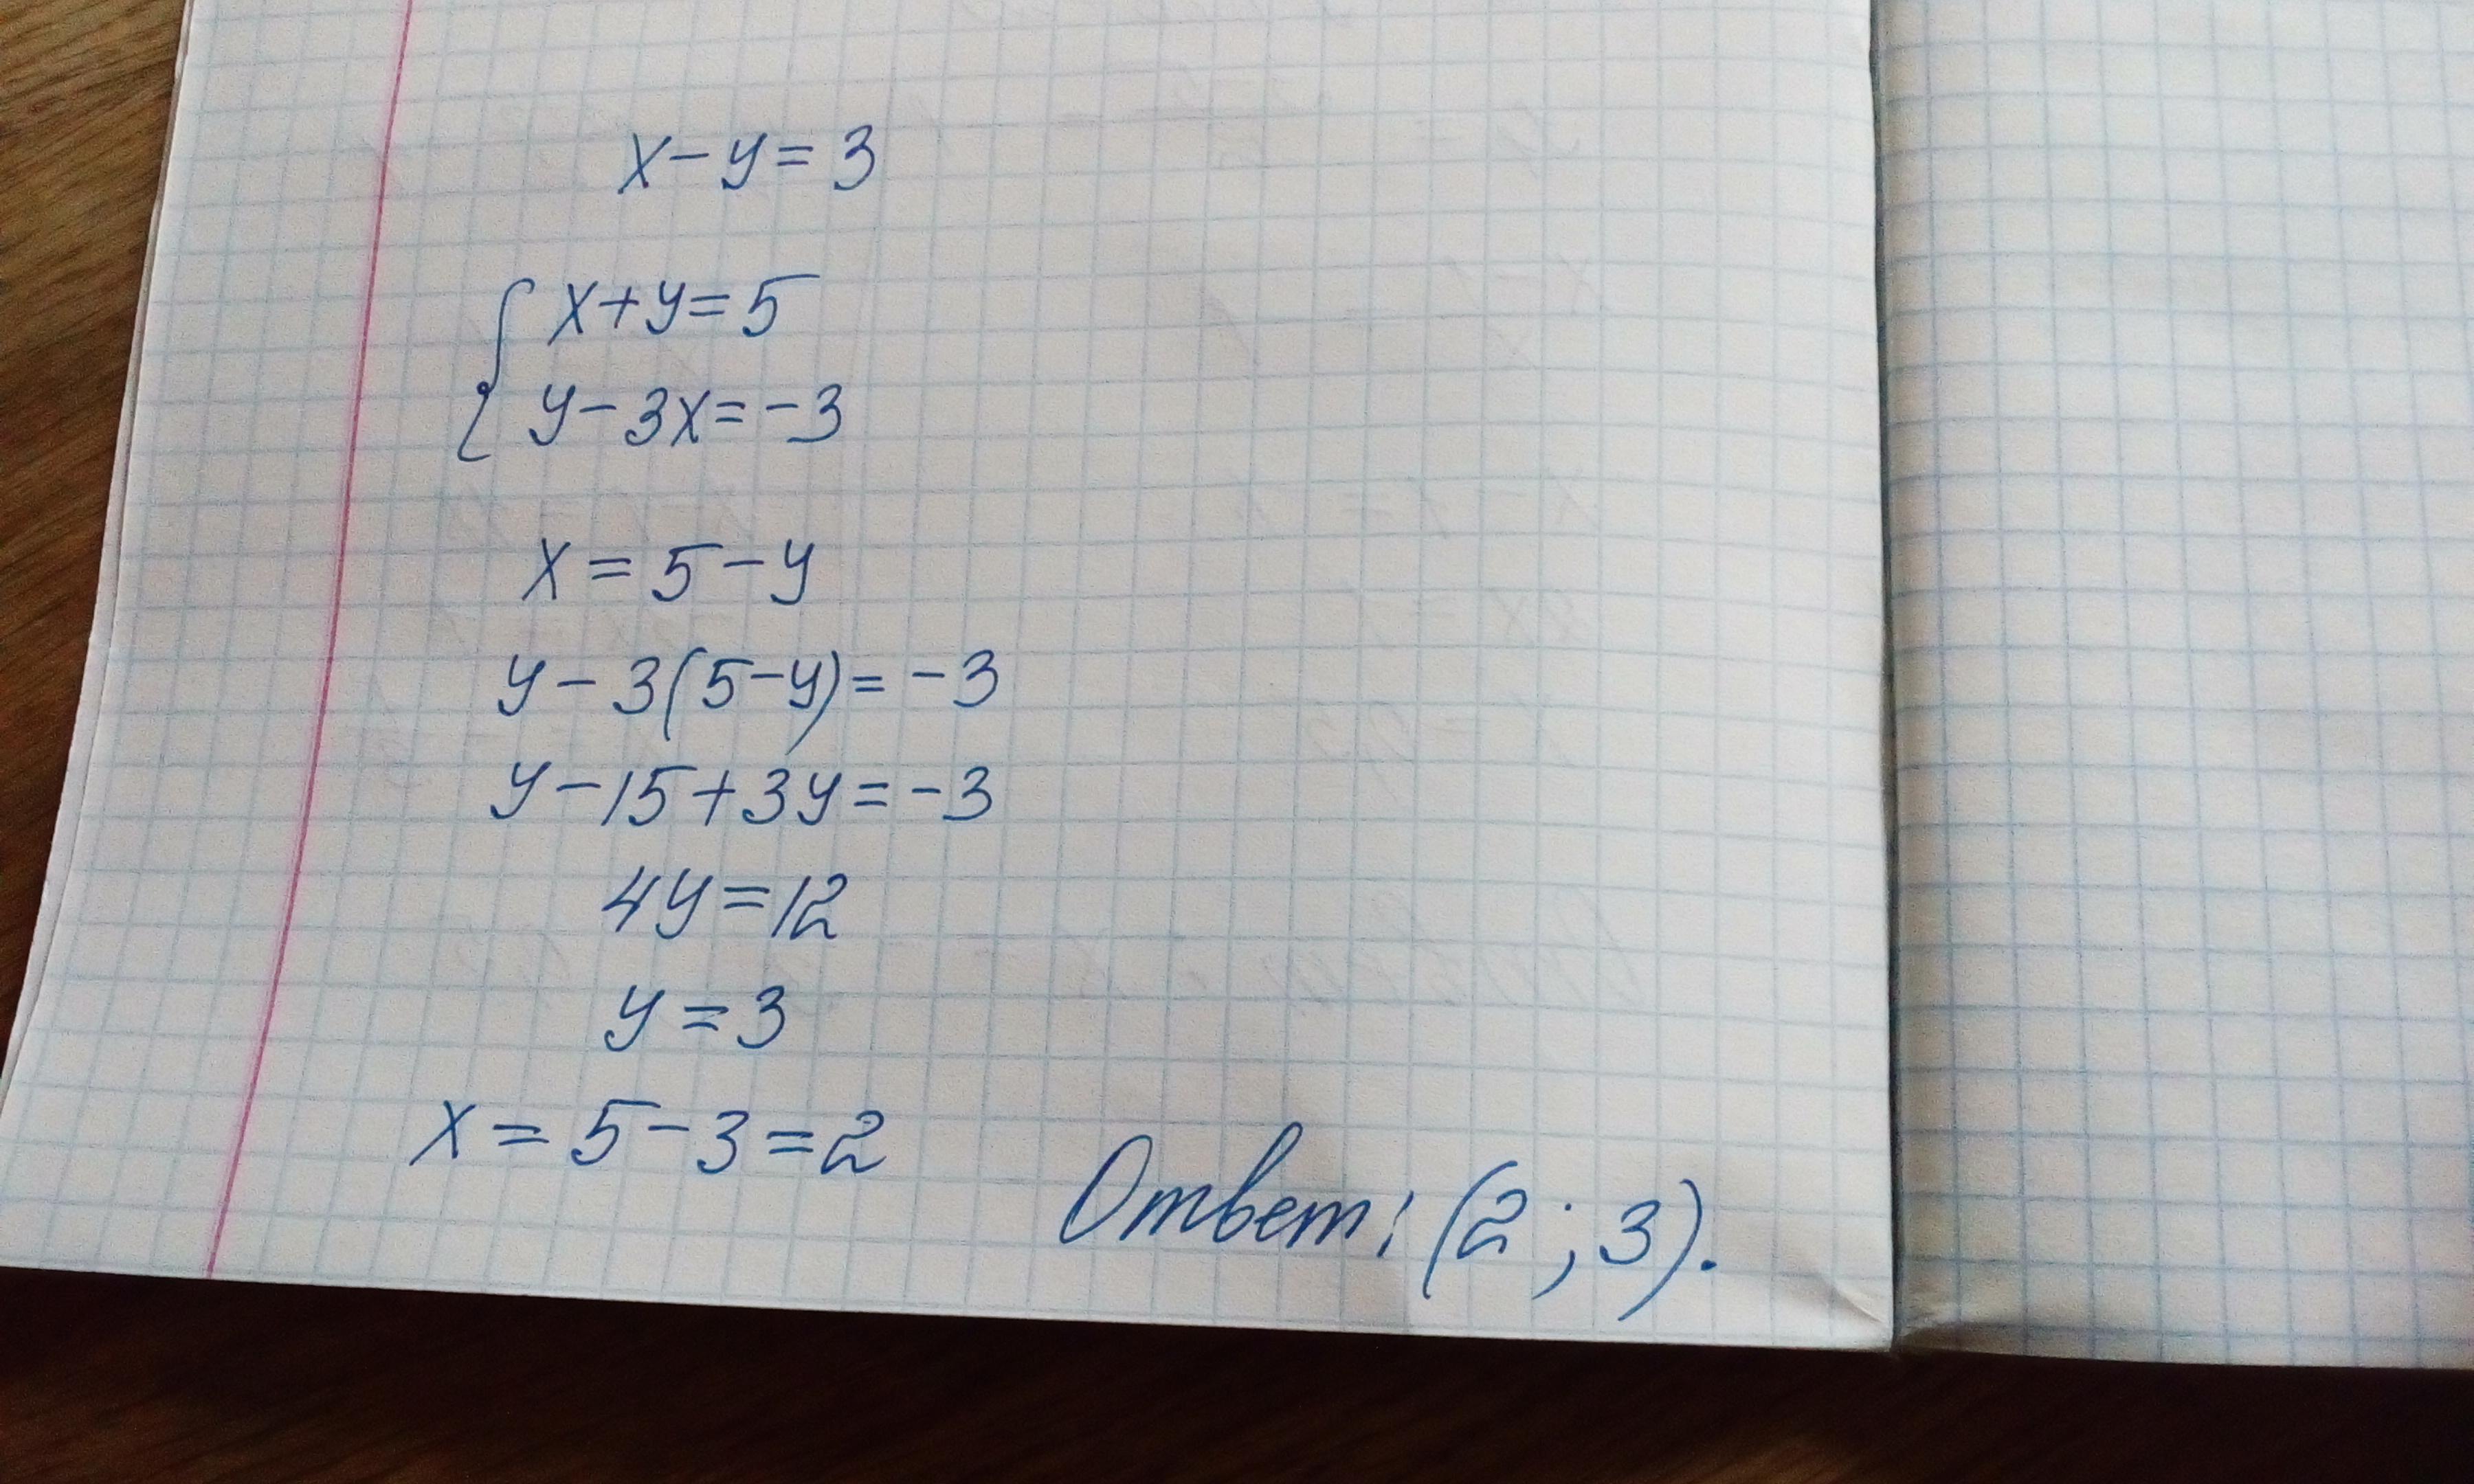 x-y=3
x+y=5
y-3x=-3
x=5-y
y-3(5-y)=-3
y-15+3y=-3
4y=12
y=3
x=5-3=2
Ответ: (2; 3).